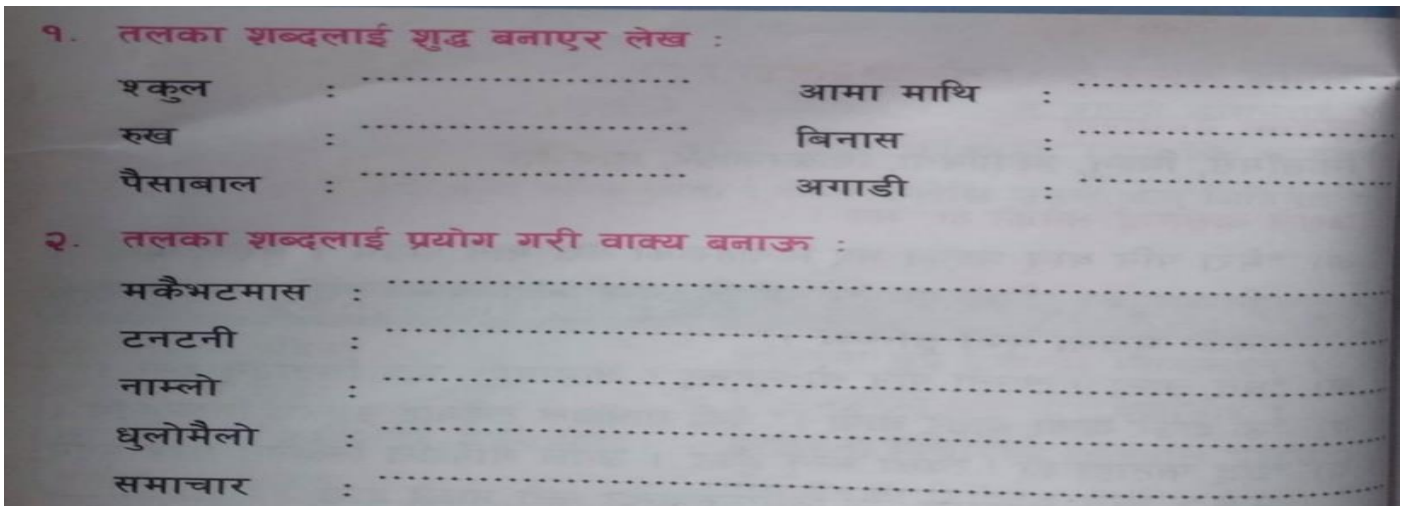 १. तलका शब्दलाई शुद्ध बनाएर लेख :
श्कुल : ........................ आमा माथि : ........................
रुख : ........................ बिनास : ........................
पैसाबाल : ........................ अगाडी : ........................
२. तलका शब्दलाई प्रयोग गरी वाक्य बनाऊ :
मकैभटमास : ........................................................................
टनटनी : ........................................................................
नाम्लो : ........................................................................
धुलोमैलो : ........................................................................
समाचार : ........................................................................